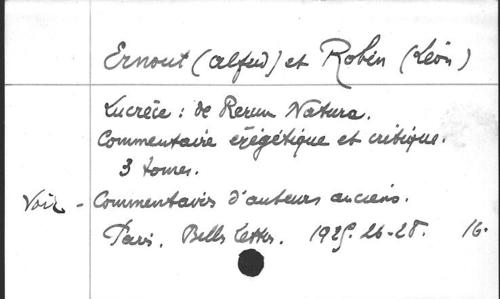 Ernout (Alfred) et Robin (Léon)
Lucrèce : de Rerum Natura.
Commentaire exégétique et critique.
3 tomes.
Voir - Commentaires d'auteurs anciens.
Paris. Belles Lettres. 1925. 26-28. 16.